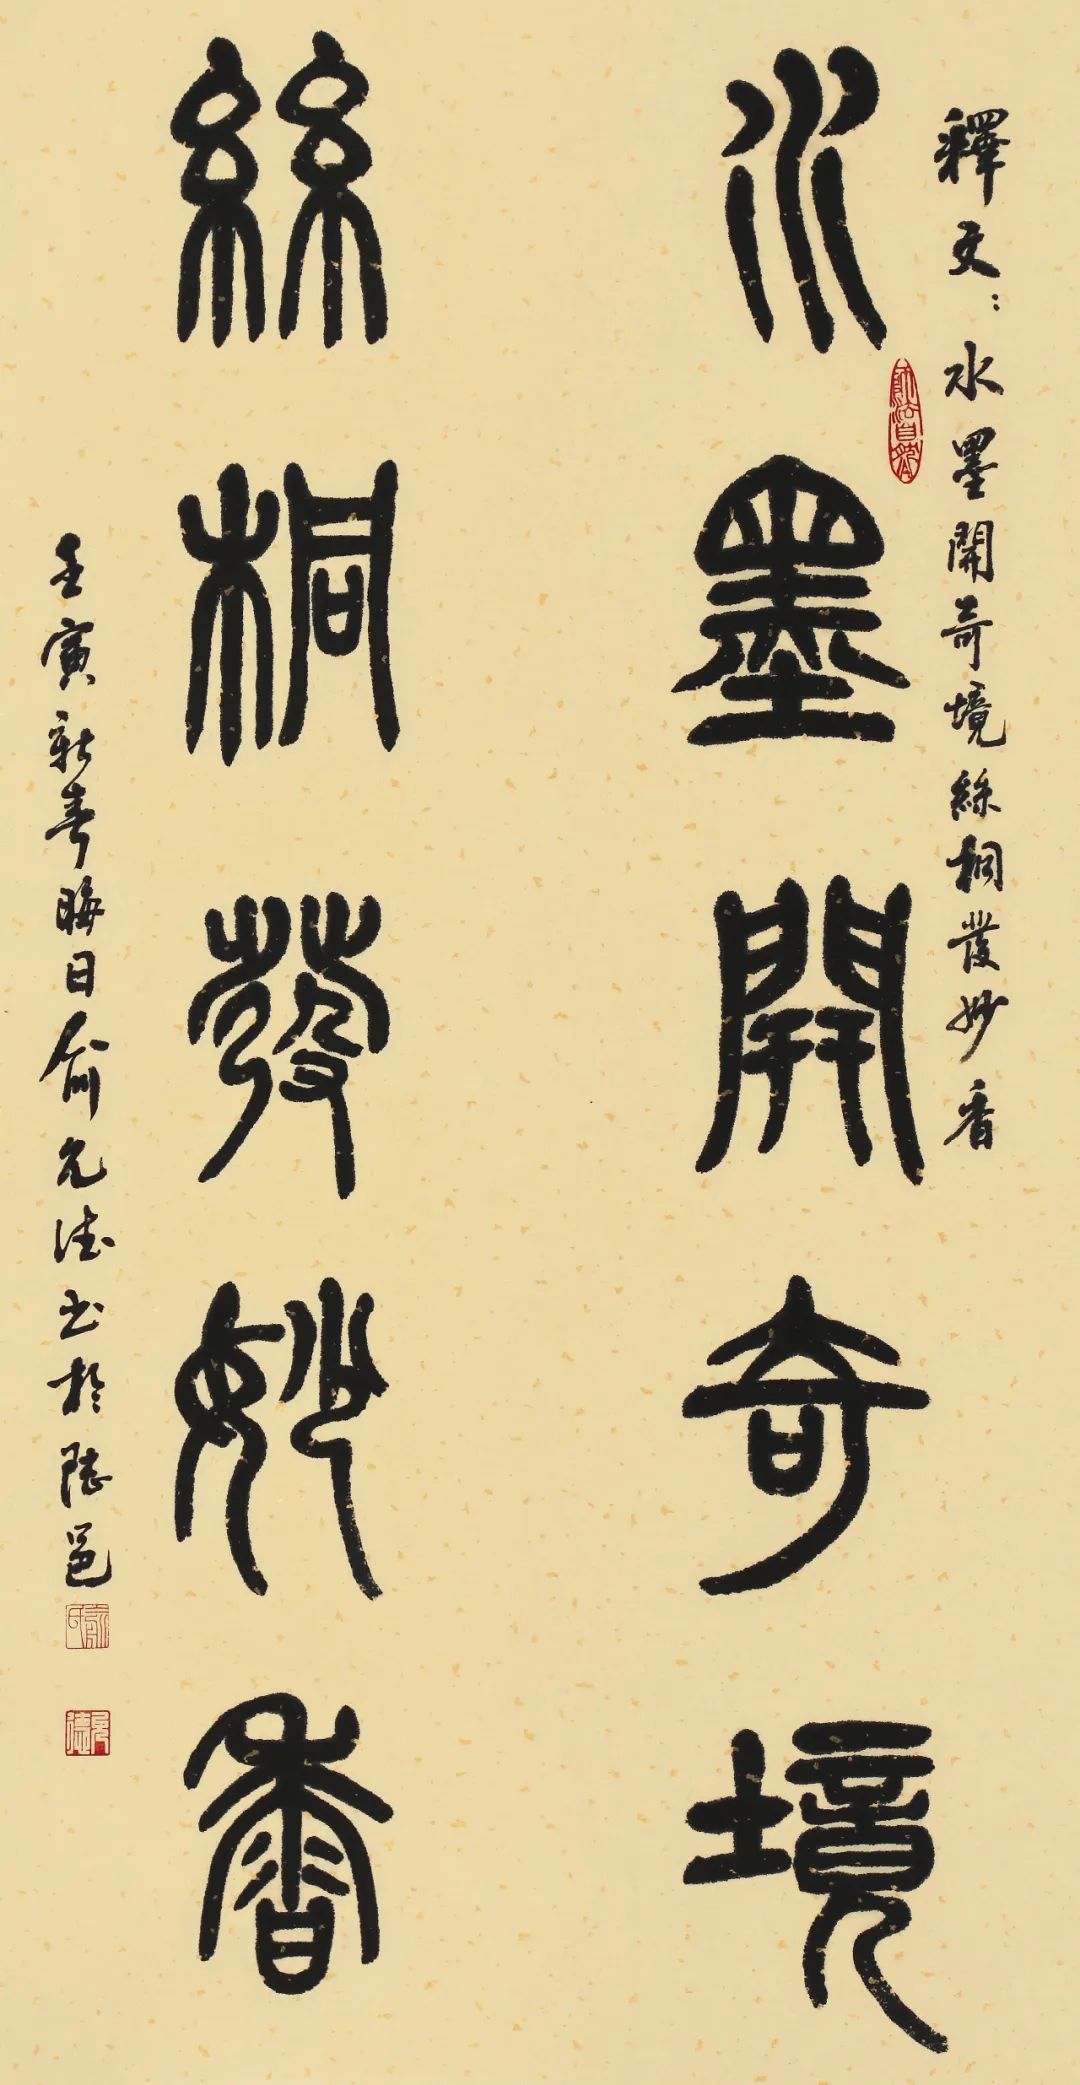 釋文：水墨開奇境絲桐發妙香
水墨開奇境
絲桐發妙香
壬寅新春晦日俞允德書於陸邑